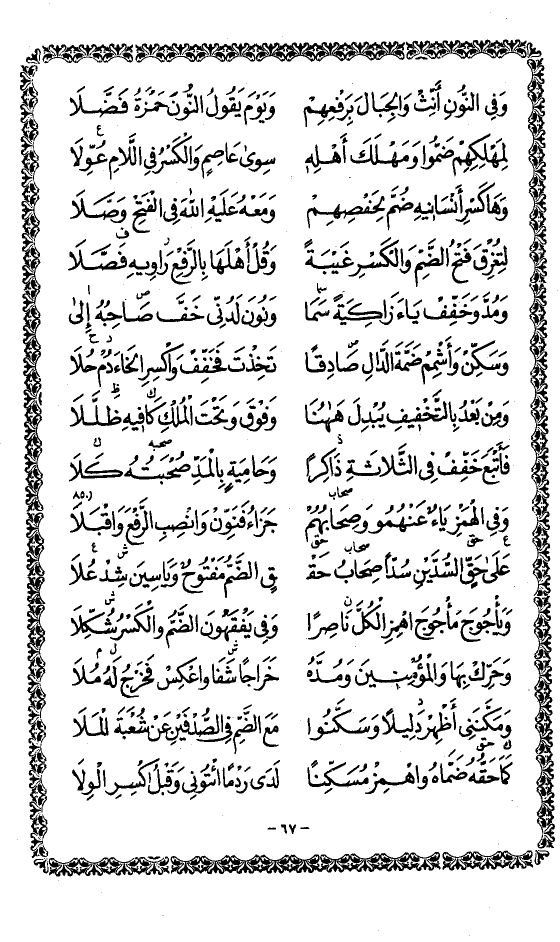 وَفِي النُّونِ أَنِّثْ وَالْجِبَالَ بِرَفْعِهِمْ وَيَوْمَ يَقُولُ النُّونَ حَمْزَةُ فَضَّلَا
لِمَهْلِكِهِمْ ضَمُّوا وَمَهْلَكَ أَهْلِهِ سِوَى عَاصِمٍ وَالْكَسْرُ فِي اللَّامِ عُوِّلَا
وَهَا كَسْرِ أَنْسَانِيهِ ضُمَّ لِحَفْصِهِمْ وَمَعْهُ عَلَيْهِ اللهَ فِي الْفَتْحِ وَصَّلَا
لِتُغْرِقَ فَتْحُ الضَّمِّ وَالْكَسْرِ غَيْبَةً وَقُلْ أَهْلَهَا بِالرَّفْعِ رَاوِيهِ فَصَّلَا
وَمُدَّ وَخَفِّفْ يَاءَ زَاكِيَةً سَمَا وَنُونَ لَدُنِّي خَفَّ صَاحِبُهُ إِلَى
وَسَكِّنْ وَأَشْمِمْ ضَمَّةَ الدَّالِ صَادِقًا تَخِذْتَ فَخَفِّفْ وَاكْسِرِ الْخَاءَ دُمْ حُلَا
وَمِنْ بَعْدُ بِالتَّخْفِيفِ يُبْدِلَ هَاهُنَا وَفَوْقَ وَتَحْتَ الْمُلْكِ كَافِيهِ ظَلَّلَا
فَأَتْبَعَ خَفِّفْ فِي الثَّلَاثَةِ ذَاكِرًا وَحَامِيَةٍ بِالْمَدِّ صُحْبَتُهُ كَلَا
وَفِي الْهَمْزِ يَاءٌ عَنْهُمُو وَصِحَابُهُمْ جَزَاءُ فَنَوِّنْ وَانْصِبِ الرَّفْعَ وَاقْبَلَا
٨٥٠
عَلَى حَقٍّ السُّدَّيْنِ سُدًّا صِحَابُ حَقْـ ـقٍ الضَّمُّ مَفْتُوحٌ وَيَاسِينَ شِدْ عُلَا
وَيَأْجُوجَ مَأْجُوجَ اهْمِزِ الْكُلَّ نَاصِرًا وَفِي يَفْقَهُونَ الضَّمُّ وَالْكَسْرُ شُكِّلَا
وَحَرِّكْ بِهَا وَالْمُؤْمِنِينَ وَمُدَّهُ خَرَاجًا شَفَا وَاعْكِسْ فَخَرْجُ لَهُ مُلَا
وَمَكَّنَنِي أَظْهِرْ دَلِيلًا وَسَكَّنُوا مَعَ الضَّمِّ فِي الصُّدْفَيْنِ عَنْ شُعْبَةَ الْمَلَا
كَمَا حَقُّهُ ضَمَّاهُ وَاهْمِزْ مُسَكِّنًا لَدَى رَدْمًا ائْتُونِي وَقَبْلُ اكْسِرِ الْوِلَا
- ٦٧ -